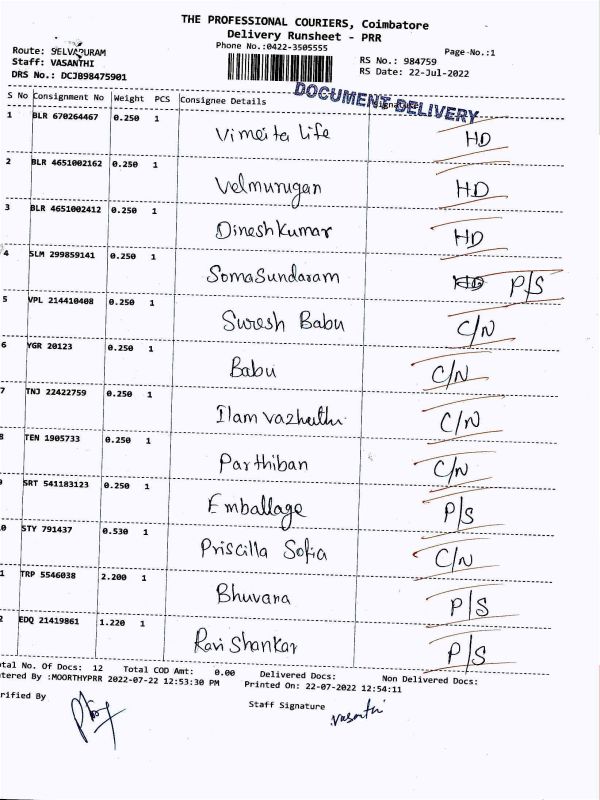 THE PROFESSIONAL COURIERS, Coimbatore
Delivery Runsheet - PRR
Phone No.:0422-3505555
Page No.:1
Route: SELVAPURAM
Staff: VASANTHI
DRS No.: DCJB98475901
RS No.: 984759
RS Date: 22-Jul-2022
DOCUMENT DELIVERY
S No Consignment No Weight PCS Consignee Details Signature
1 BLR 670264467 0.250 1 Life HD
2 BLR 4651002162 0.250 1 Velmurugan HD
3 BLR 4651002412 0.250 1 Dinesh Kumar HD
4 SLM 299859141 0.250 1 SomaSundaram HD P/S
5 VPL 214410408 0.250 1 Suresh Babu C/N
6 YGR 20123 0.250 1 Babu C/N
7 TNJ 22422759 0.250 1 C/N
8 TEN 1905733 0.250 1 Parthiban C/N
9 SRT 541183123 0.250 1 Emballage P/S
0 STY 791437 0.530 1 Priscilla Sofia C/N
1 TRP 5546038 2.200 1 Bhuvana P/S
2 EDQ 21419861 1.220 1 Ravi Shankar P/S
otal No. Of Docs: 12 Total COD Amt: 0.00 Delivered Docs: Non Delivered Docs:
tered By :MOORTHYPRR 2022-07-22 12:53:30 PM Printed On: 22-07-2022 12:54:11
rified By
Staff Signature
Vasanthi